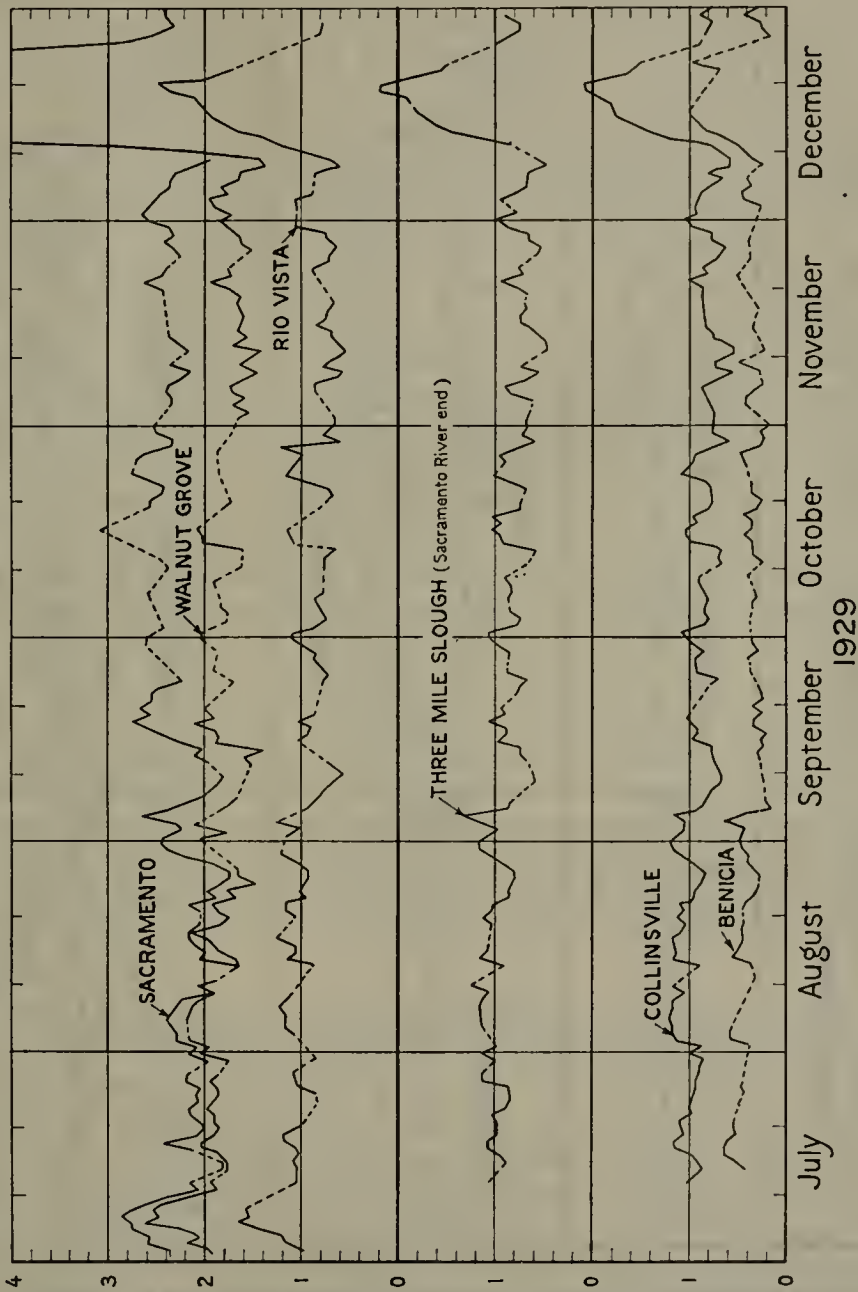 4
3
2
1
0
1
0
1
0
SACRAMENTO
WALNUT GROVE
RIO VISTA
THREE MILE SLOUGH (Sacramento River end)
COLLINSVILLE
BENICIA
July
August
September
October
November
December
1929